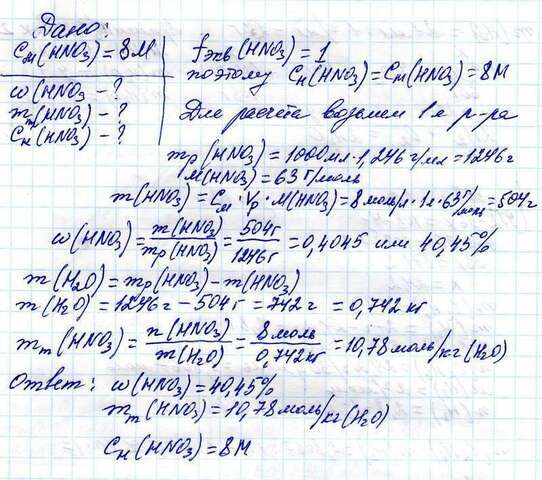 Дано:
Cм(HNO3)=8М
ω(HNO3 - ?
mm(HNO3) - ?
Cн(HNO3) - ?
fэкв(HNO3)=1
поэтому Cн(HNO3)=Cм(HNO3)=8М
Для расчёта возьмем 1л р-ра
mр(HNO3)=1000мл·1,246г/мл=1246г
М(HNO3)=63г/моль
m(HNO3)=Cм·Vр·М(HNO3)=8моль/л·1л·63г/моль=504г
ω(HNO3)=m(HNO3)/mр(HNO3)=504г/1246г=0,4045 или 40,45%
m(H2O)=mр(HNO3)-m(HNO3)
m(H2O)=1246г-504г=742г=0,742кг
mm(HNO3)=n(HNO3)/m(H2O)=8моль/0,742кг=10,78моль/кг(H2O)
Ответ: ω(HNO3)=40,45%
mm(HNO3)=10,78моль/кг(H2O)
Cн(HNO3)=8М